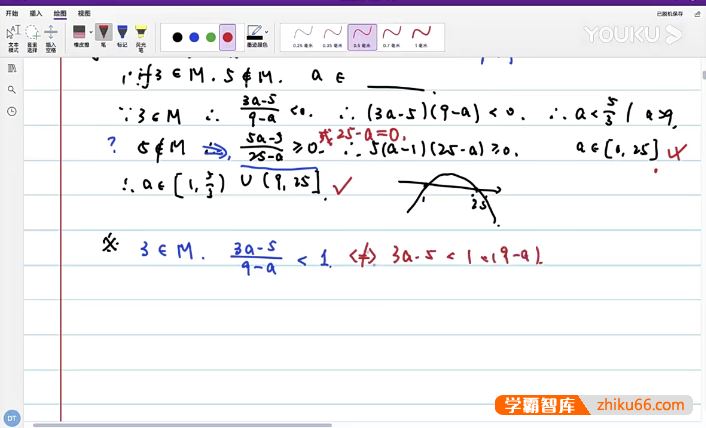 开始 插入 绘图 视图
已脱机保存
文本模式 套索选择 插入空格 橡皮擦 笔 标记 荧光笔 墨迹颜色 0.25 毫米 0.35 毫米 0.5 毫米 0.7 毫米 1 毫米
YOUKU
if 3 ∈ M. 5 ∉ M. a ∈ ______.
∵ 3 ∈ M ∴ (3a-5)/(9-a) < 0. ∴ (3a-5)(9-a) < 0. ∴ a < 5/3 / a > 9.
或 25-a=0.
? 5 ∉ M ⇒ (5a-5)/(25-a) ≥ 0. ∴ 5(a-1)(25-a) ≥ 0. a ∈ [1, 25]
∴ a ∈ [1, 5/3) ∪ (9, 25]. ✓
1 25
※ 3 ∈ M. (3a-5)/(9-a) < 1. <≠> 3a-5 < 1×(9-a)
DT
学霸智库 zhiku66.com